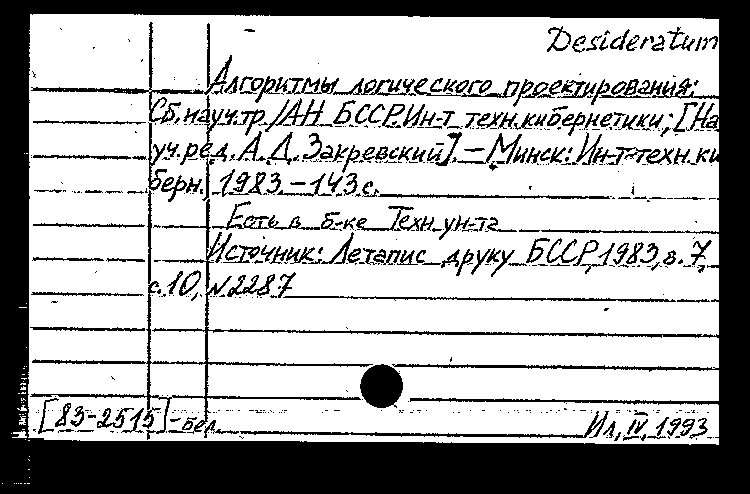 Desideratum
Алгоритмы логического проектирования:
Сб.науч.тр./АН БССР.Ин-т техн.кибернетики; [На
уч.ред. А.Д. Закревский]. – Минск: Ин-т техн.ки
берн., 1983. – 143 с.
Есть в б-ке Техн.ун-та
Источник: Летапис друку БССР, 1983, в. 7,
с.10, №2287
[83-2515] - бел.
Ил, IV, 1993